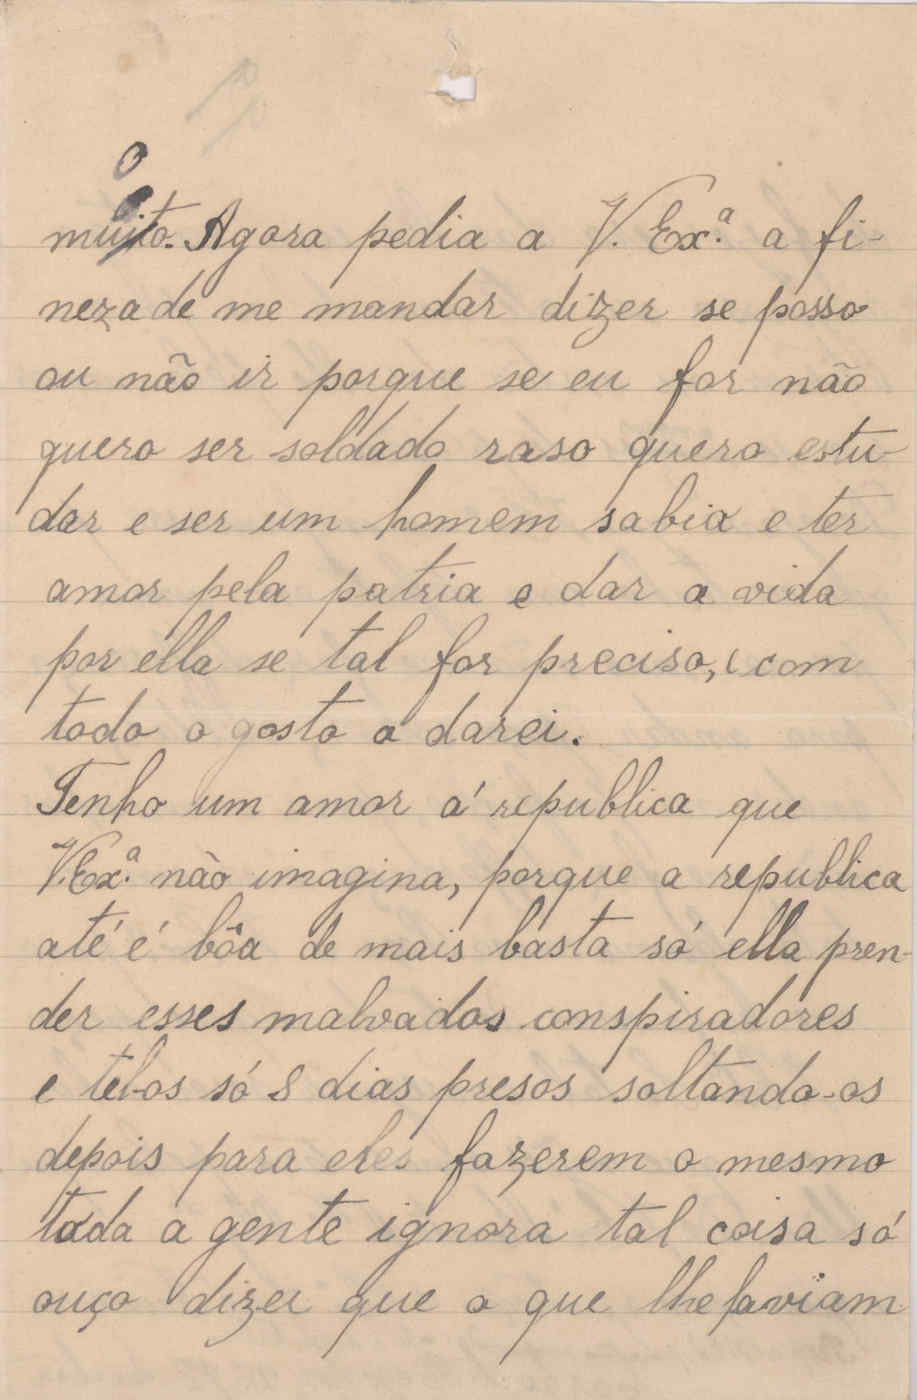 muito. Agora pedia a V. Exª. a fi-
neza de me mandar dizer se posso
ou não ir porque se eu for não
quero ser soldado raso quero estu-
dar e ser um homem sabia e ter
amor pela patria e dar a vida
por ella se tal for preciso, e com
todo o gosto a darei.
Tenho um amor á republica que
V. Exª. não imagina, porque a republica
até é bôa de mais basta só ella pren-
der esses malvados conspiradores
e tel-os só 8 dias presos soltando-os
depois para eles fazerem o mesmo
toda a gente ignora tal coisa só
ouço dizer que o que lhe faviam